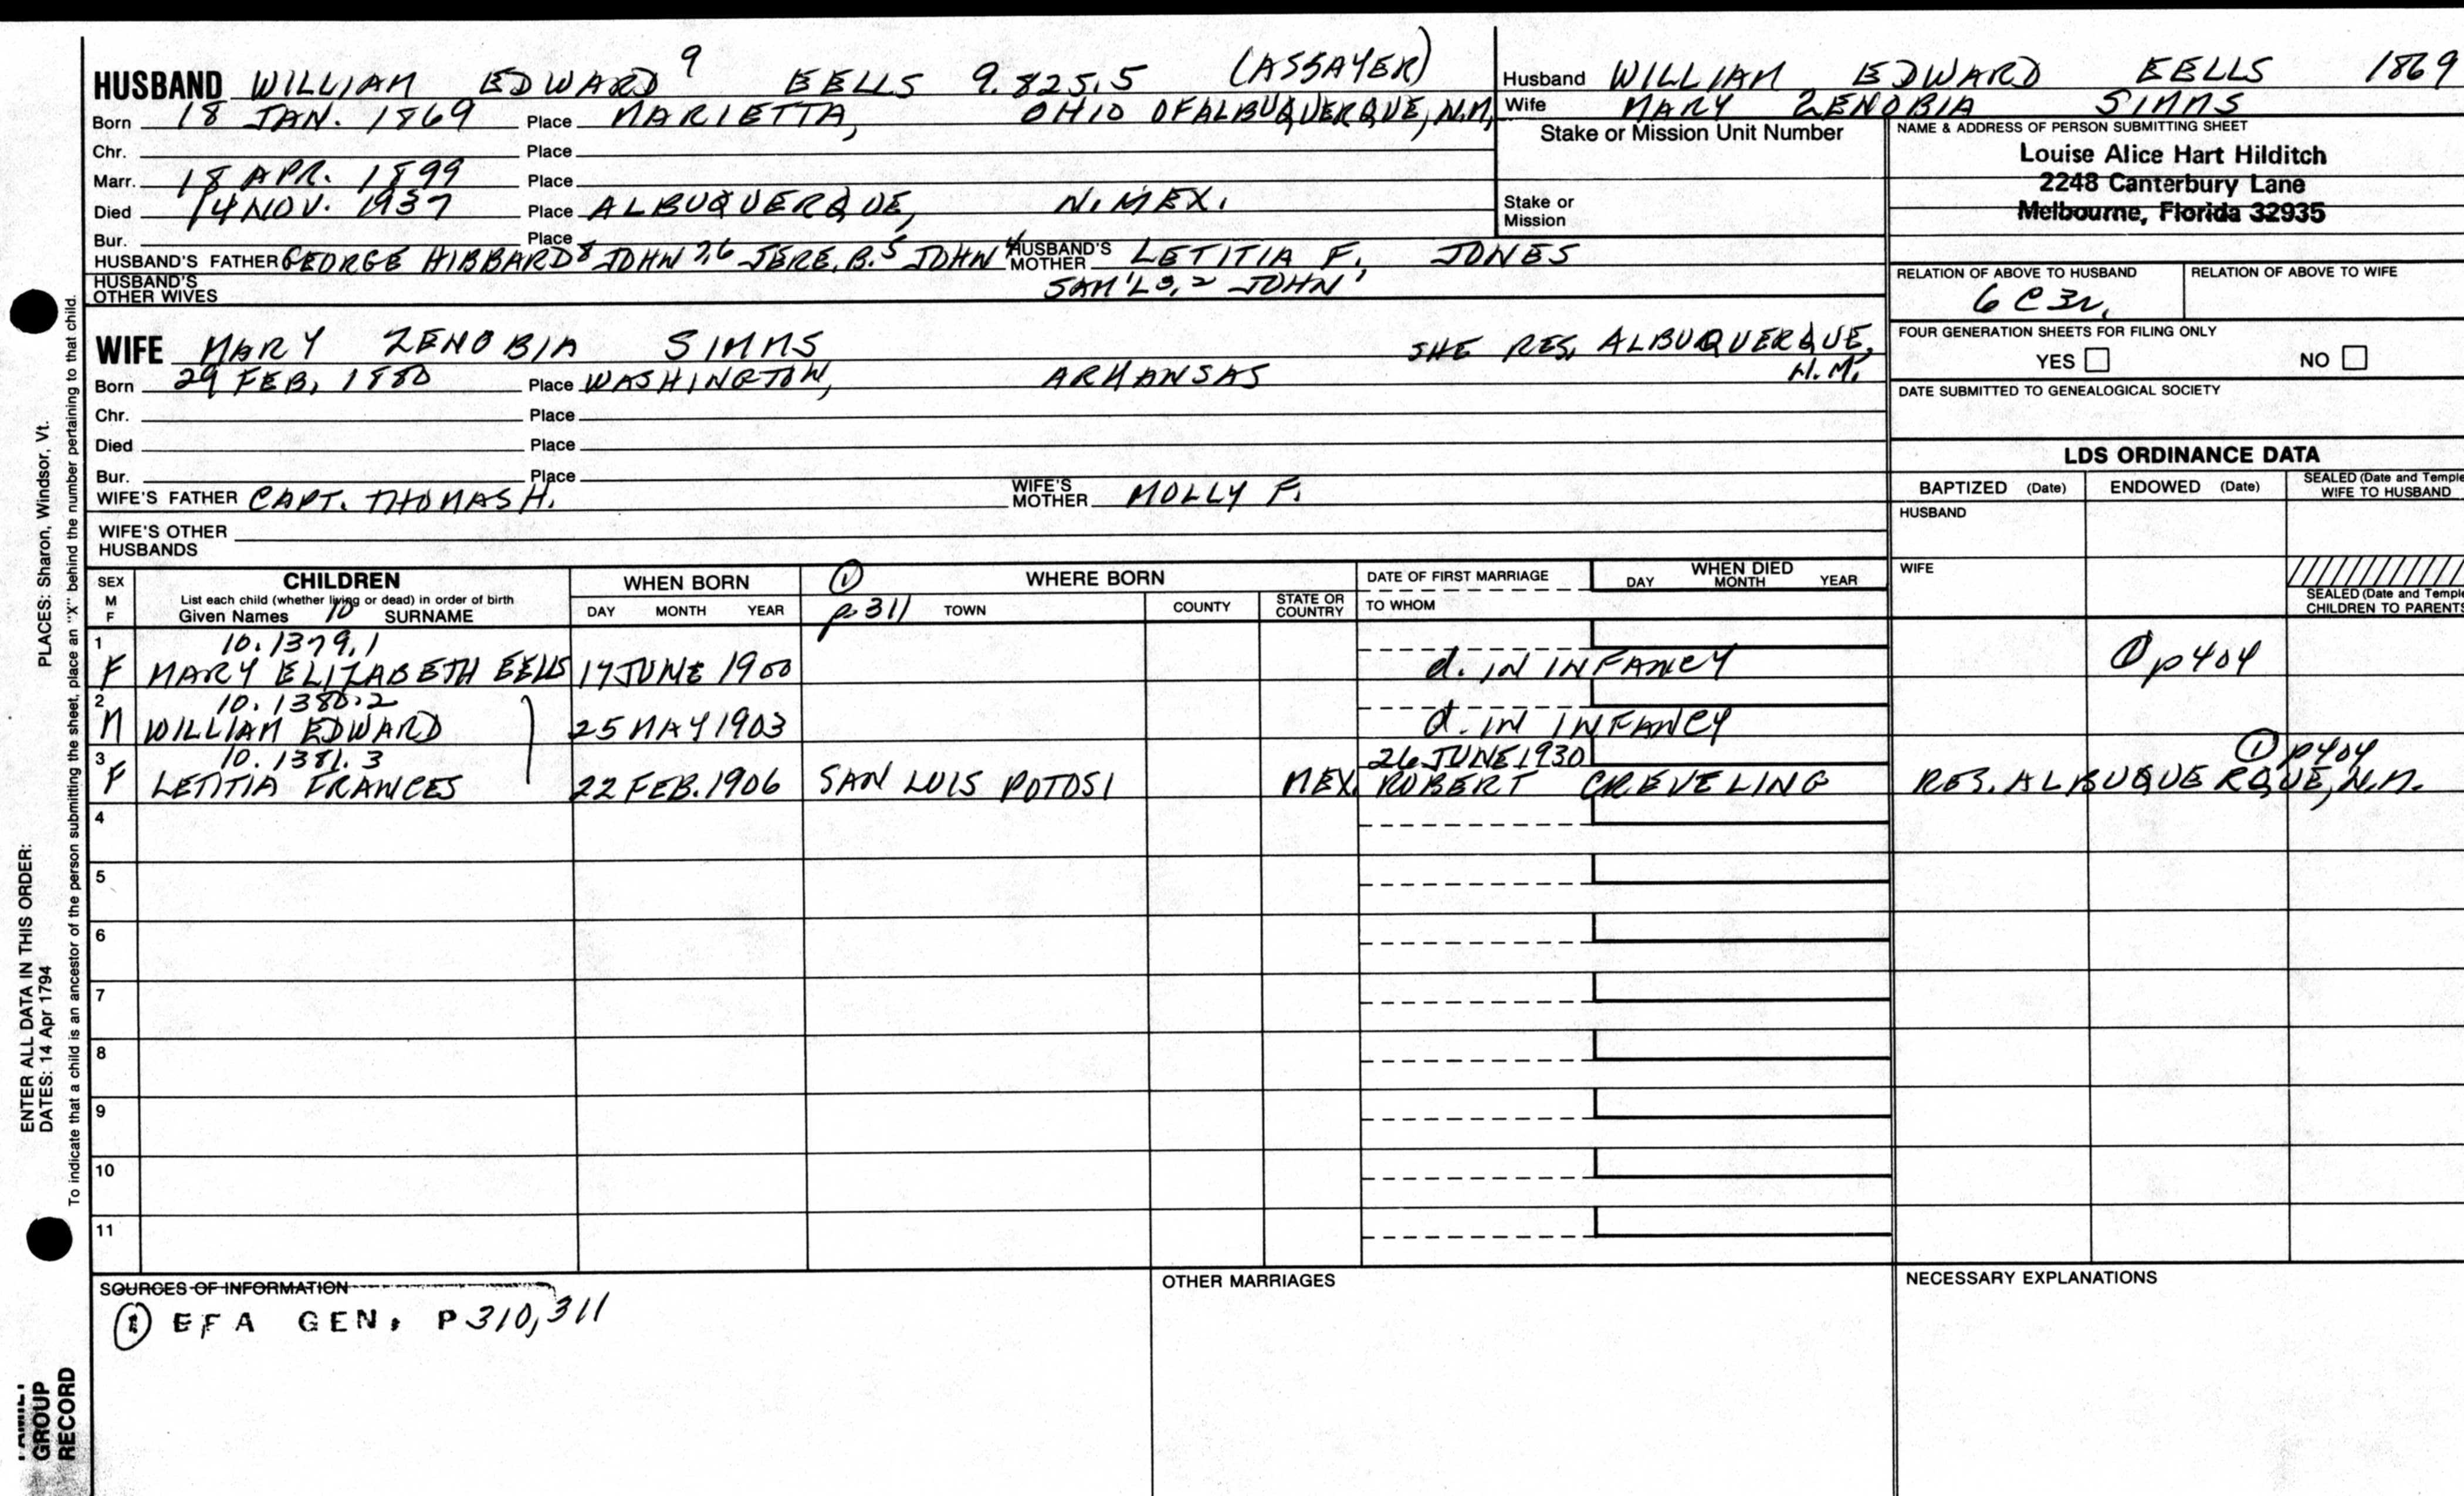 HUSBAND WILLIAM EDWARD 9 EELLS 9.825.5 (ASSAYER)
Born 18 JAN. 1869 Place MARIETTA, OHIO OF ALBUQUERQUE, N.M.
Chr. Place
Marr. 18 APR. 1899 Place
Died 14 NOV. 1937 Place ALBUQUERQUE, N. MEX.
Bur. Place
HUSBAND'S FATHER GEORGE HIBBARD 8 JOHN 7,6 JERE. B. 5 JOHN 4 HUSBAND'S MOTHER LETITIA F. JONES
HUSBAND'S OTHER WIVES SAM'L 3,2 JOHN 1
WIFE MARY ZENOBIA SIMMS SHE RES. ALBUQUERQUE, N.M.
Born 29 FEB. 1880 Place WASHINGTON, ARKANSAS
Chr. Place
Died Place
Bur. Place
WIFE'S FATHER CAPT. THOMAS H. WIFE'S MOTHER MOLLY F.
WIFE'S OTHER HUSBANDS
Husband WILLIAM EDWARD EELLS 1869
Wife MARY ZENOBIA SIMMS
Stake or Mission Unit Number
Stake or Mission
NAME & ADDRESS OF PERSON SUBMITTING SHEET
Louise Alice Hart Hilditch
2248 Canterbury Lane
Melbourne, Florida 32935
RELATION OF ABOVE TO HUSBAND RELATION OF ABOVE TO WIFE
6 C 3r.
FOUR GENERATION SHEETS FOR FILING ONLY
YES NO
DATE SUBMITTED TO GENEALOGICAL SOCIETY
LDS ORDINANCE DATA
BAPTIZED (Date) ENDOWED (Date) SEALED (Date and Temple WIFE TO HUSBAND
HUSBAND
WIFE
SEALED (Date and Temple CHILDREN TO PARENTS
SEX M F CHILDREN
List each child (whether living or dead) in order of birth
Given Names 10 SURNAME
WHEN BORN
DAY MONTH YEAR
① p 311 WHERE BORN
TOWN COUNTY STATE OR COUNTRY
DATE OF FIRST MARRIAGE
TO WHOM
WHEN DIED
DAY MONTH YEAR
1 10.1379.1
F MARY ELIZABETH EELLS 17 JUNE 1900 d. IN INFANCY ① p 404
2 10.1380.2
M WILLIAM EDWARD 25 MAY 1903 d. IN INFANCY
3 10.1381.3 26 JUNE 1930 ① p 404
F LETITIA FRANCES 22 FEB. 1906 SAN LUIS POTOSI MEX. ROBERT CREVELING RES. ALBUQUERQUE, N.M.
4
5
6
7
8
9
10
11
SOURCES OF INFORMATION
① EFA GEN. P 310, 311
OTHER MARRIAGES
NECESSARY EXPLANATIONS
ENTER ALL DATA IN THIS ORDER:
DATES: 14 Apr 1794
PLACES: Sharon, Windsor, Vt.
To indicate that a child is an ancestor of the person submitting the sheet, place an "X" behind the number pertaining to that child.
FAMILY
GROUP
RECORD